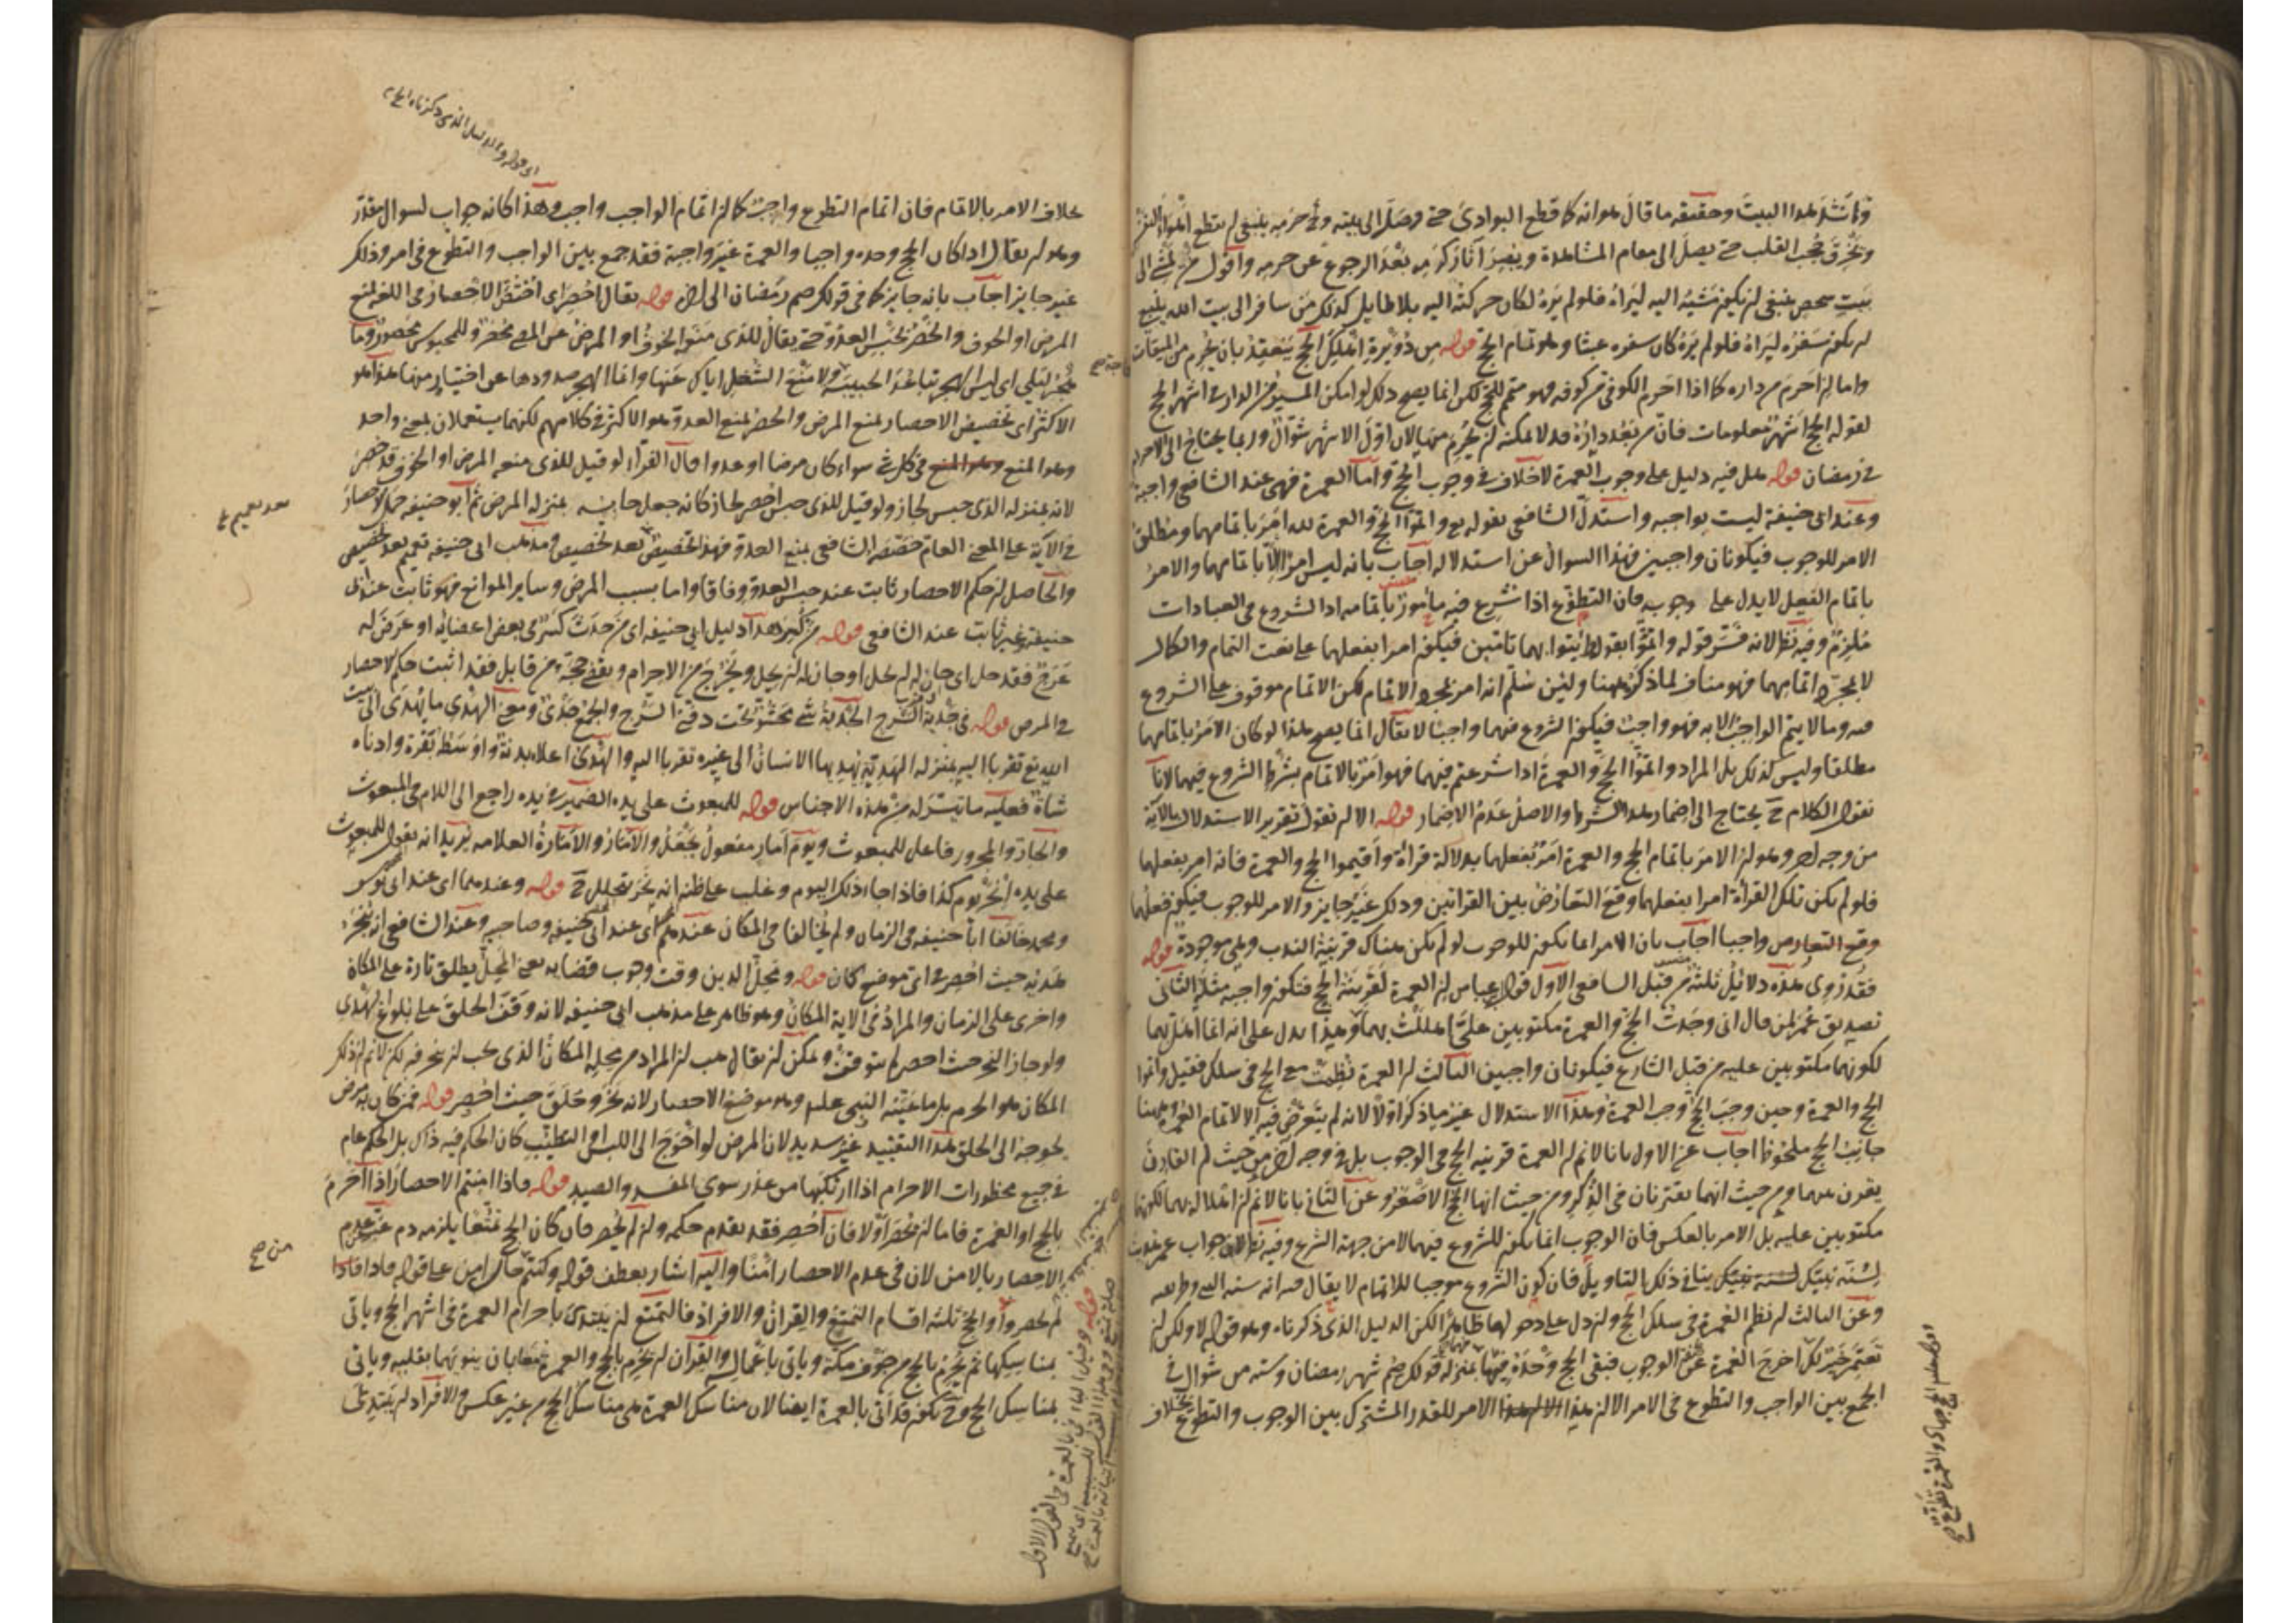 هذا البيت وحقيقه ما قال هو انه كما قطع البوادى حتى وصل الى بيته وحرمه ينبغى ان يقطع اهواء النفس
ويخرق حجب القلب حتى يصل الى مقام المشاهدة ويبصر آثار كرمه بعد الرجوع عن حرمه واقول من مشى الى
بيت شخص ينبغى ان يكون مشيه اليه ليراه فلو لم يره لكان حركته اليه بلا طايل كذلك من سافر الى بيت الله ينبغى
ان يكون سفره ليراه فلو لم يره كان سفره عبثا وهو تمام الحج قوله من دويرة اهلك الحج ينعقد بان يحرم من الميقات
واما ان احرم من داره كما اذا احرم الكوفى من كوفه فهو متمم للحج لكن انما يصح ذلك لو امكن المسير من الدار فى اشهر الحج
لقوله الحج اشهر معلومات فان من بعد داره قد لا يمكنه ان يحرم منها لان اول الاشهر شوال وربما يحتاج الى الاحرام
فى رمضان قوله هل فيه دليل على وجوب العمرة لا خلاف فى وجوب الحج واما العمرة فهى عند الشافعى واجبة
وعند ابى حنيفة ليست بواجبه واستدل الشافعى بقوله تع واتموا الحج والعمرة لله امر باتمامهما ومطلق
الامر للوجوب فيكونان واجبين فهذا السوال عن استدلاله اجاب بانه ليس امرا الا باتمامهما والامر
باتمام الفعل لا يدل على وجوبه فان التطوع اذا شرع فيه مأمور باتمامه اذ الشروع فى العبادات
ملزم وفيه نظر لانه فسر قوله واتموا بقوله ائتوا بهما تامين فيكون امرا بفعلهما على نعت التمام والكمال
لا بمجرد اتمامهما فهو مناف لما ذكره هنا ولئن سلم انه امر بمجرد الاتمام لكن الاتمام موقوف على الشروع
فيه وما لا يتم الواجب الا به فهو واجب فيكون الشروع فيهما واجبا لا يقال انما يصح هذا لو كان الامر باتمامهما
مطلقا وليس كذلك بل المراد واتموا الحج والعمرة اذا شرعتم فيهما فهو امر بالاتمام بشرط الشروع فيهما لانا
نقول الكلام ح يحتاج الى اضمار هذا الشرط والاصل عدم الاضمار قوله الا ان نقول تقرير الاستدلال بالآية
من وجه اخر وهو ان الامر باتمام الحج والعمرة امر بفعلهما بدلالة قراءة واقيموا الحج والعمرة فانه امر بفعلهما
فلو لم تكن تلك القراءة امرا بفعلهما وقع التعارض بين القراتين وذلك غير جايز والامر للوجوب فيكون فعلهما
واجبا اجاب بان الامر انما يكون للوجوب لو لم يكن هناك قرينة الندب وهى موجودة قوله
فقد روى هذه دلائل ثلثة من قبل الشافعى الاول قول ابن عباس ان العمرة لقرينة الحج فتكون واجبه مثله الثانى
تصديق عمر لمن قال انى وجدت الحج والعمرة مكتوبين على اهللت بهما وهذا يدل على انه انما اهل بهما
لكونهما مكتوبين عليه من قبل الشارع فيكونان واجبين الثالث ان العمرة نظمت مع الحج فى سلك فقيل واتموا
الحج والعمرة وحين وجب الحج وجب العمرة وهذا الاستدلال غير ما ذكر اولا لانه لم يتعرض فيه الا لاتمام العمرة وههنا
جانب الحج ملحوظ اجاب عن الاول بانا لا نم ان العمرة قرينة الحج فى الوجوب بل فى وجه اخر من حيث ان القارن
يقرن بينهما ومن حيث انهما يقترنان فى الذكر ومن حيث انها الحج الاصغر وعن الثانى بانا لا نم ان اهلاله بهما لكونهما
مكتوبين عليه بل الامر بالعكس فان الوجوب انما يكون للشروع فيهما لا من جهة الشرع وفيه نظر لان جواب عمر هديت
لسنة نبيك ينافى ذلك التاويل فان كون الشروع موجبا للاتمام لا يقال فيه انه سنه النبى وطريقه
وعن الثالث ان نظم العمرة فى سلك الحج وان دل على وجوبها ظاهرا لكن الدليل الذى ذكرناه وهو قوله لا ولكن ان
تعتمر خير لك اخرج العمرة عن الوجوب فبقى الحج وحده فيها بمنزلة قولك صم شهر رمضان وسته من شوال فى
الجمع بين الواجب والتطوع فى الامر الا ان هذا الامر للقدر المشترك بين الوجوب والتطوع بخلاف
اى قوله والدليل الذى ذكرناه الخ
بخلاف الامر بالاتمام فان اتمام التطوع واجب كما ان اتمام الواجب واجب وهذا كانه جواب لسوال مقدر
وهو ان يقال اذا كان الحج وحده واجبا والعمرة غير واجبة فقد جمع بين الواجب والتطوع فى امر وذلك
غير جايز اجاب بانه جايز كما فى قولك صم رمضان الى اخره قوله يقال احصر اى اختص الاحصار فى اللغه لمنع
المرض او الخوف والحصر لحبس العدو حتى يقال للذى منع الخوف او المرض عن المضى محصر وللمحبوس محصور وما
هجر ليلى اى ليس الهجر تباعد الحبيبة ولا منع الشغل اياك عنها وانما الهجر صدودها عن اختيار منها هذا هو
الاكثر اى تخصيص الاحصار بمنع المرض والحصر بمنع العدو هو الاكثر فى كلامهم لكنهما يستعملان بمعنى واحد
وهو المنع فى كل شى سواء كان مرضا او عدوا قال الفراء لو قيل للذى منعه المرض او الخوف قد حصر
لانه بمنزله الذى حبس لجاز ولو قيل للذى حبس احصر لجاز كانه جعل حابسه بمنزله المرض ثم ابو حنيفه حمل الاحصار
فى الآية على المعنى العام خصصه الشافعى بمنع العدو فهذا تخصيص بعد تخصيص ومذهب ابى حنيفه تعميم بعد تخصيص
والحاصل ان حكم الاحصار ثابت عند حبس العدو وفاقا واما بسبب المرض وساير الموانع فهو ثابت عند ابى
حنيفة غير ثابت عند الشافعى قوله من كسر هذا دليل ابى حنيفه اى من حدث كسر فى بعض اعضائه او عرض له
عرج فقد حل اى جاز له ان يحل او حان له ان يحل ويخرج من الاحرام وبقى حجة من قابل فقد اثبت حكم الاحصار
فى المرض قوله فى جدية السرج الجدية شى محشو تحت دفتى السرج والجمع جدى ومعنى الهدى ما يهدى الى بيت
الله تع تقربا اليه بمنزله الهدية يهديها الانسان الى غيره تقربا اليه والهدى اعلاه بدنة واوسطه بقرة وادناه
شاة فعليه ما تيسر له من هذه الاجناس قوله للمبعوث على يده الضمير فى يده راجع الى اللام فى المبعوث
والجار والمجرور فاعل للمبعوث ويوم امار مفعول يجعل والامار والامارة العلامه يريد انه يقول للمبعوث
على يده انحر يوم كذا فاذا جاء ذلك اليوم وغلب على ظنه انه نحر تحلل ح قوله وعندهما اى عند ابى يوسف
ومحمد خالفا ابا حنيفه فى الزمان ولم يخالفا فى المكان عندهم اى عند ابى حنيفه وصاحبيه وعند الشافعى انه ينحر
هديه حيث احصر فى اى موضع كان قوله ومحل الدين وقت وجوب قضايه يعنى المحل يطلق تارة على المكان
واخرى على الزمان والمراد فى الاية المكان وهو ظاهر على مذهب ابى حنيفه لانه وقف الحلق على بلوغ الهدى
ولو جاز النحر حيث احصر لم يتوقف ويمكن ان يقال هب ان المراد من محله المكان الذى يجب ان ينحر فيه لكن لا نم ان ذلك
المكان هو الحرم بل ما عينه النبى علم وهو موضع الاحصار لانه نحر وحلق حيث احصر قوله فمن كان به مرض
يحوجه الى الحلق هذا التقييد غير سديد لان المرض لو احوج الى اللبس او التطيب كان الحكم فيه ذاك بل الحكم عام
فى جميع محظورات الاحرام اذا ارتكبها من عذر سوى المفسد والصيد قوله فاذا امنتم الاحصار اذا احرم
بالحج او العمرة فاما ان يحصر اولا فان احصر فقد تقدم حكمه وان لم يحصر فان كان الحج تمتعا يلزمه دم عبر عن عدم
الاحصار بالامن لان فى عدم الاحصار امنا واليه اشار بعطف قوله وكنتم فى حال امن على قوله فاذا
لم تحصروا والحج ثلثه اقسام التمتع والقران والافراد فالتمتع ان يبتدى باحرام العمرة فى اشهر الحج وياتى
بمناسكها ثم يحرم بالحج من جوف مكة وياتى باعماله والقران ان يحرم بالحج والعمرة معا بان ينويهما بقلبه وياتى
بمناسك الحج وح يكون قد اتى بالعمرة ايضا لان مناسك العمرة هى مناسك الحج من غير عكس والافراد ان يبتدى